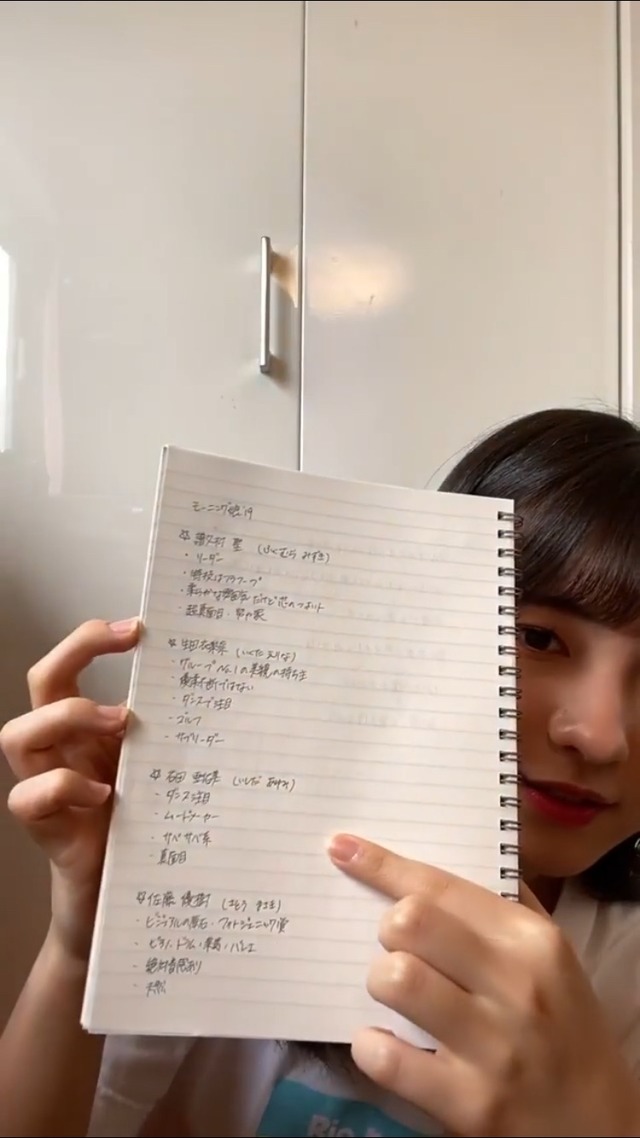 モーニング娘'19
☆ 譜久村 聖 (ふくむら みずき)
・リーダー
・特技はフラフープ
・柔らかな雰囲気だけど芯のつよい
・超真面目・
☆ 生田衣梨奈 (いくた えりな)
・グループNo.1の美貌の持ち主
・優柔不断ではない
・ダンスで注目
・ゴルフ
・サブリーダー
☆ 石田 亜佑美 (いしだ あゆみ)
・ダンス注目
・ムードメーカー
・サバサバ系
・真面目
☆ 佐藤 優樹 (さとう まさき)
・ビジュアルの原石・フォトジェニック賞
・ピアノ・ドラム・
・絶対音感あり
・天然